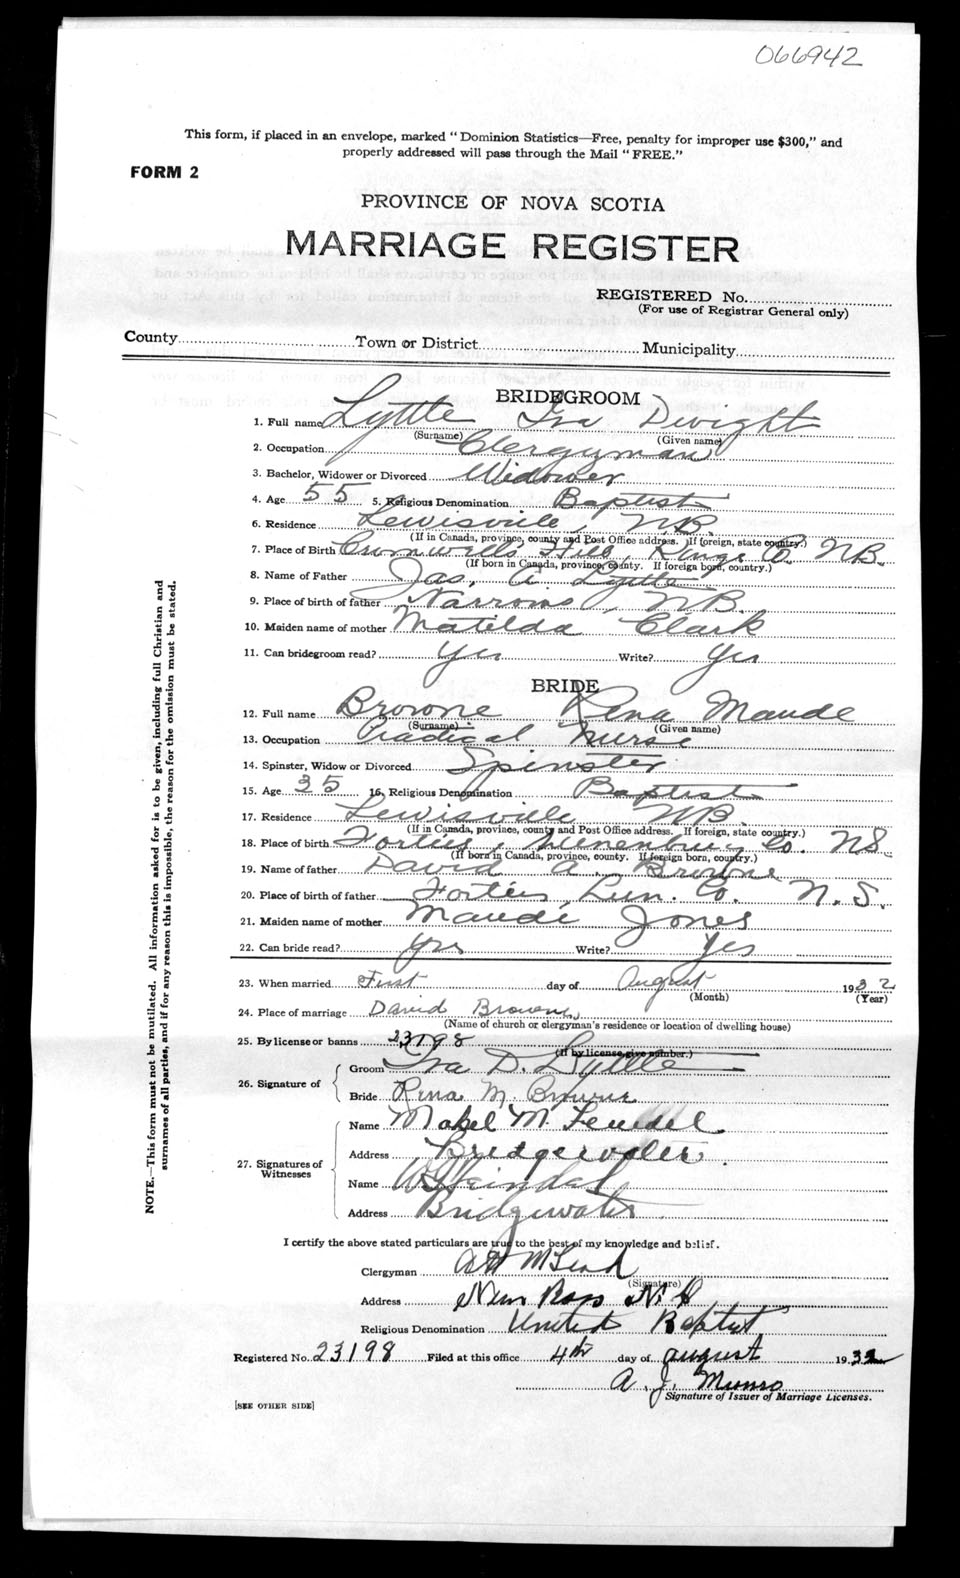 066942
This form, if placed in an envelope, marked "Dominion Statistics—Free, penalty for improper use $300," and
properly addressed will pass through the Mail "FREE."
FORM 2
PROVINCE OF NOVA SCOTIA
MARRIAGE REGISTER
REGISTERED No.
(For use of Registrar General only)
County Town or District Municipality
BRIDEGROOM
1. Full name Lyttle Ira Dwight
(Surname) (Given name)
2. Occupation Clergyman
3. Bachelor, Widower or Divorced Widower
4. Age 55 5. Religious Denomination Baptist
6. Residence Lewisville, N.B.
(If in Canada, province, county and Post Office address. If foreign, state country.)
7. Place of Birth Cromwells Hill, Kings Co. N.B.
(If born in Canada, province, county. If foreign born, country.)
8. Name of Father Jas. A Lyttle
9. Place of birth of father Narrows, N.B.
10. Maiden name of mother Matilda Clark
11. Can bridegroom read? Yes Write? Yes
BRIDE
12. Full name Browne Rena Maude
(Surname) (Given name)
13. Occupation Practical Nurse
14. Spinster, Widow or Divorced Spinster
15. Age 35 16. Religious Denomination Baptist
17. Residence Lewisville N.B.
(If in Canada, province, county and Post Office address. If foreign, state country.)
18. Place of birth Forties, Lunenburg Co. N.S.
(If born in Canada, province, county. If foreign born, country.)
19. Name of father David A. Browne
20. Place of birth of father Forties Lun. Co. N.S.
21. Maiden name of mother Maude Jones
22. Can bride read? Yes Write? Yes
23. When married First day of August 1932
(Month) (Year)
24. Place of marriage David Browne
(Name of church or clergyman's residence or location of dwelling house)
25. By license or banns 23198
(If by license, give number.)
26. Signature of
Groom Ira D. Lyttle
Bride Rena M. Browne
27. Signatures of Witnesses
Name Mabel M.
Address Bridgewater.
Name
Address Bridgewater
I certify the above stated particulars are true to the best of my knowledge and belief.
Clergyman
(Signature)
Address New Ross N.S
Religious Denomination United Baptist
Registered No. 23198 Filed at this office 4th day of august 1932
A. J. Munro
Signature of Issuer of Marriage Licenses.
[SEE OTHER SIDE]
NOTE.—This form must not be mutilated. All information asked for is to be given, including full Christian and
surnames of all parties, and if for any reason this is impossible, the reason for the omission must be stated.